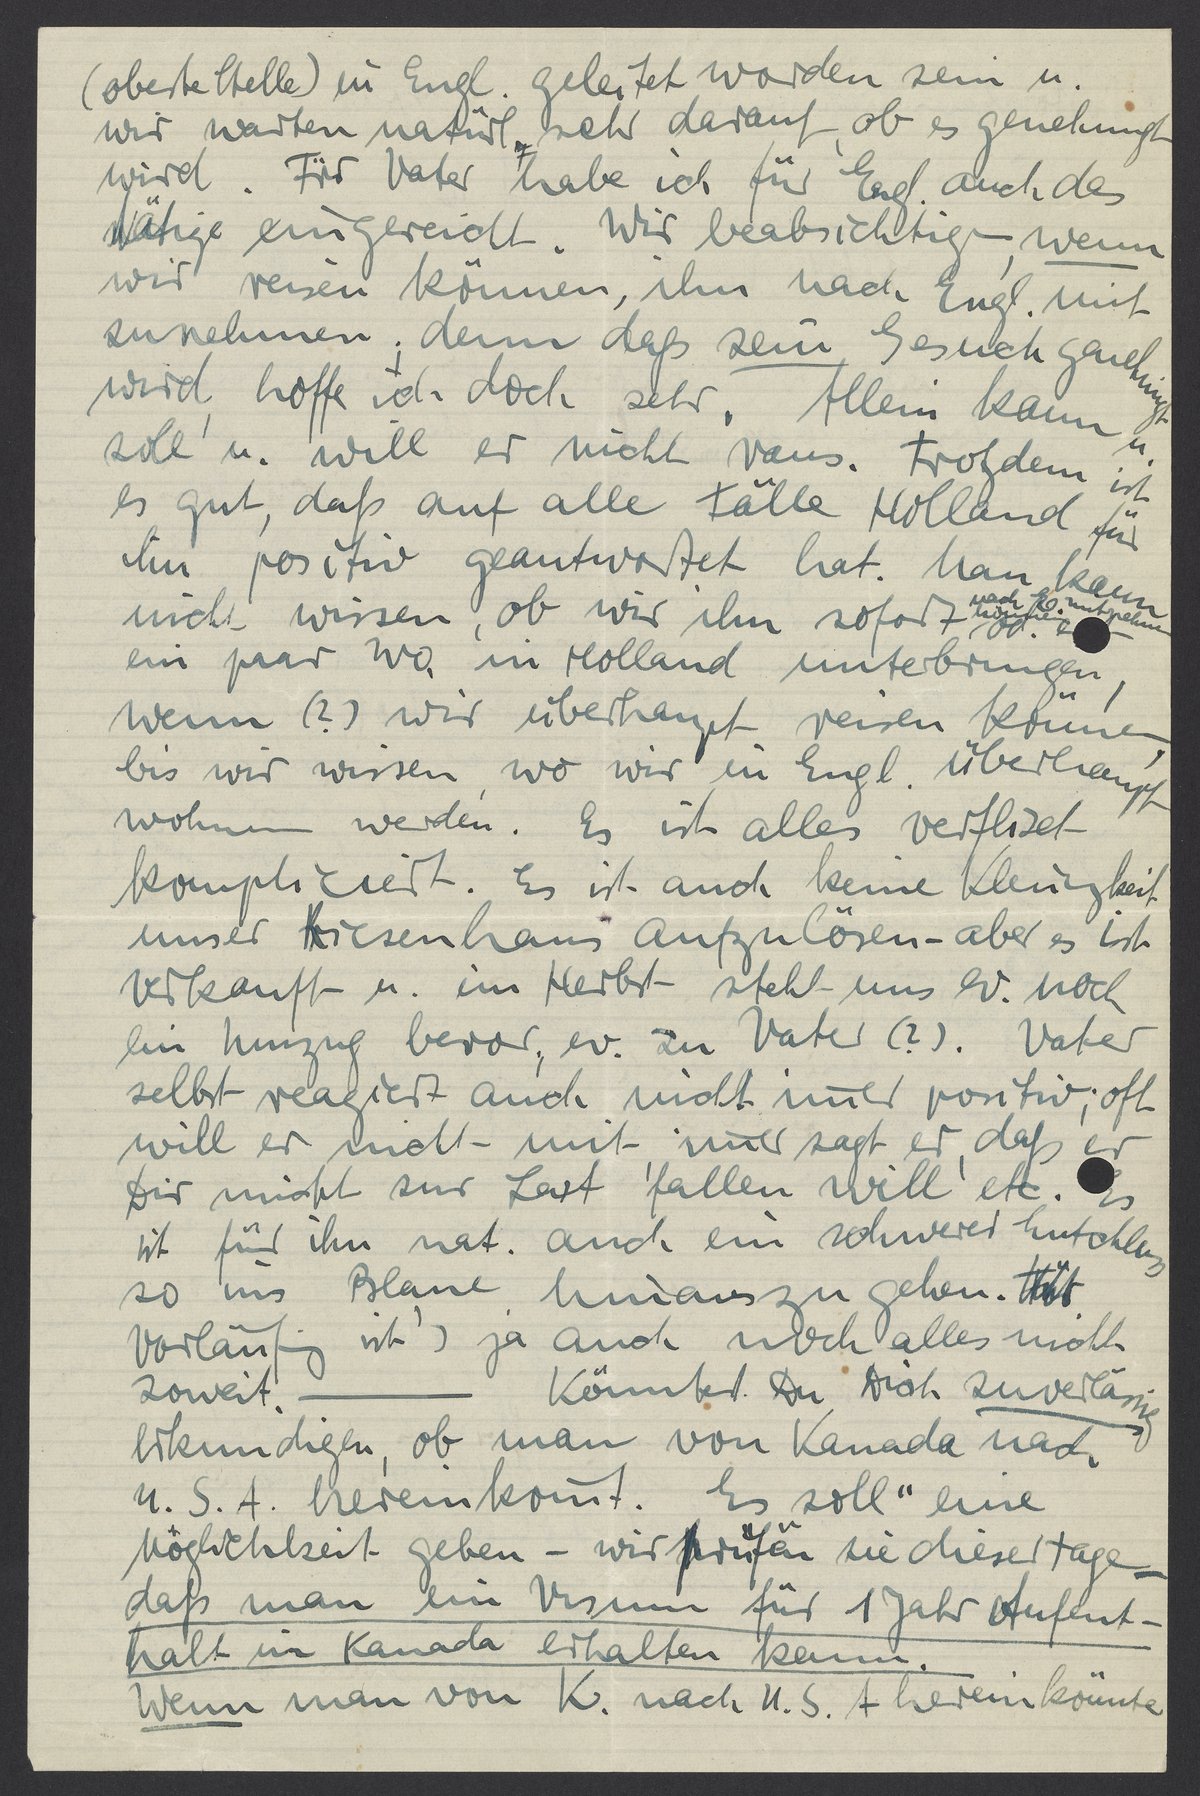 (oberste Stelle) in Engl. geleitet worden sein u.
wir warten natürl. sehr darauf, ob es genehmigt
wird. Für Vater habe ich für Engl. auch das
Nötige eingereicht. Wir beabsichtigen, wenn
wir reisen können, ihn nach Engl. mit
zunehmen; denn daß sein Gesuch genehmigt
wird, hoffe ich doch sehr. Allein kann u.
soll u. will er nicht raus. Trotzdem ist
es gut, daß auf alle Fälle Holland für
ihn positiv geantwortet hat. Man kann
nicht wissen, ob wir ihn sofort nach E. mitnehmen können od.
ein paar Wo. in Holland unterbringen,
wenn (?) wir überhaupt reisen können,
bis wir wissen, wo wir in Engl. überhaupt
wohnen werden. Es ist alles verflixt
kompliziert. Es ist auch keine Kleinigkeit
unser Riesenhaus aufzulösen - aber es ist
verkauft u. im Herbst steht uns ev. noch
ein Umzug bevor, ev. zu Vater (?). Vater
selbst reagiert auch nicht im̅er positiv; oft
will er nicht mit, im̅er sagt er, daß er
Dir nicht zur Last fallen will etc. Es
ist für ihn nat. auch ein schwerer Entschluss
so ins Blaue hinauszugehen.
Vorläufig ist's ja auch noch alles nicht
soweit. — Könntest Du Dich zuverlässig
erkundigen, ob man von Kanada nach
U. S. A. hereinkom̅t. Es soll" eine
Möglichkeit geben - wir prüfen sie dieser Tage -
daß man ein Visum für 1 Jahr Aufent-
halt in Kanada erhalten kann.
Wenn man von K. nach U. S. A hereinkönnte